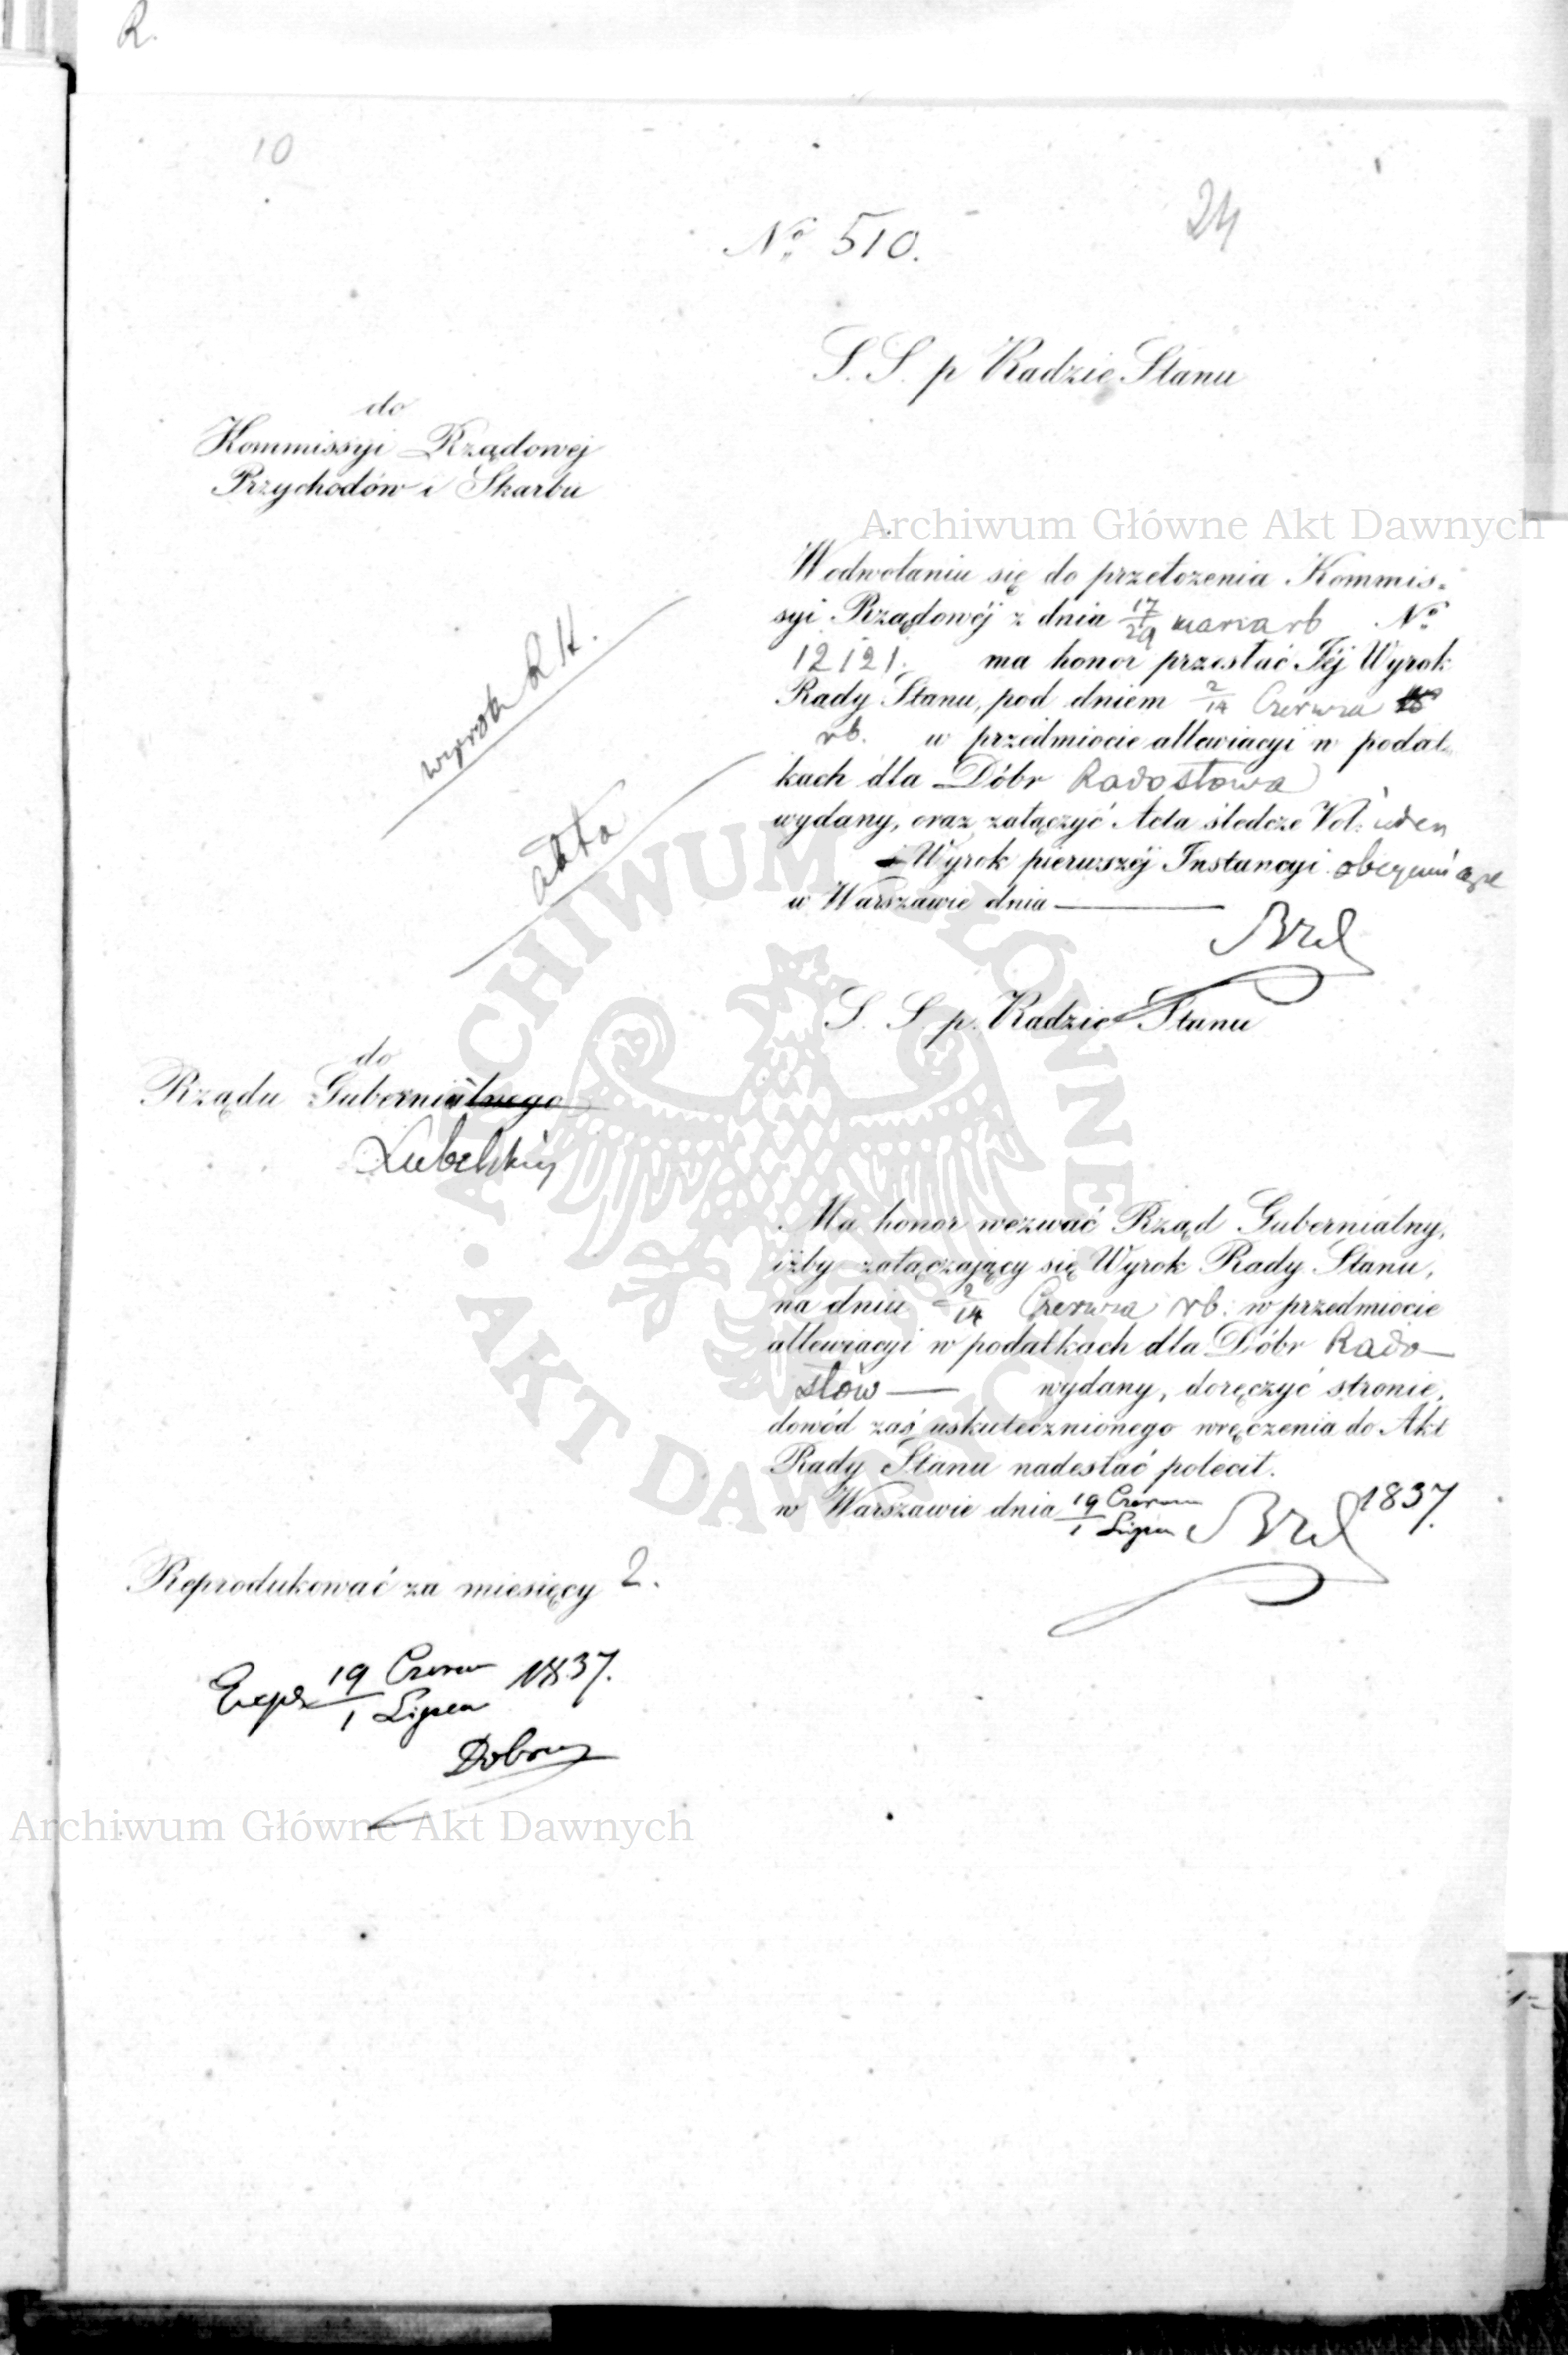 R.
10
24
No 510.
S. S. p Radzie Stanu
do
Kommissyi Rządowej
Przychodów i Skarbu
Archiwum Główne Akt Dawnych
W odwołaniu się do przełożenia Kommis=
syi Rządowéj z dnia 17/29 marca rb No
12121. ma honor przesłać Jéj Wyrok
Rady Stanu, pod dniem 2/14 Czerwca
rb. w przedmiocie allewiacyi w podat=
kach dla Dóbr Radostowa
wydany, oraz załączyć Acta śledcze Vol: jeden
i Wyrok pierwszéj Instancyi obejmujące
w Warszawie dnia
wyrok R. St.
akta
S. S. p. Radzie Stanu
do
Rządu Gubernialnego
Lubelskiej
Ma honor wezwać Rząd Gubernialny,
iżby załączający się Wyrok Rady Stanu,
na dniu 2/14 Czerwca rb. w przedmiocie
allewiacyi w podatkach dla Dóbr Rado-
stów wydany, doręczyć stronie,
dowód zaś uskutecznionego wręczenia do Akt
Rady Stanu nadesłać polecił.
w Warszawie dnia 19 Czerwca/1 Lipca 1837.
Reprodukować za miesięcy 2.
19 Czerwca/1 Lipca 1837.
Archiwum Główne Akt Dawnych
ARCHIWUM GŁÓWNE AKT DAWNYCH